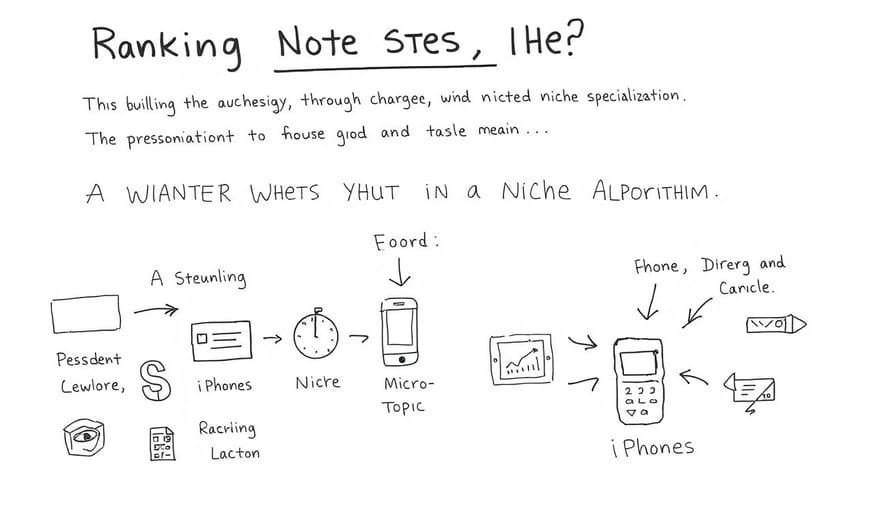 Ranking Note STES, IHe?
This builling the auchesigy, through chargee, wind nicted niche specialization.
The pressoniationt to house giod and tasle meain...
A WIANTER WHETS YHUT iN a Niche ALPORITHIM.
Eoord:
A Steunling
Fhone, Direrg and
Canicle.
Pessdent
Lewlore,
iPhones
Nicre
Micro-
TOPIC
Racrling
Lacton
iPhones